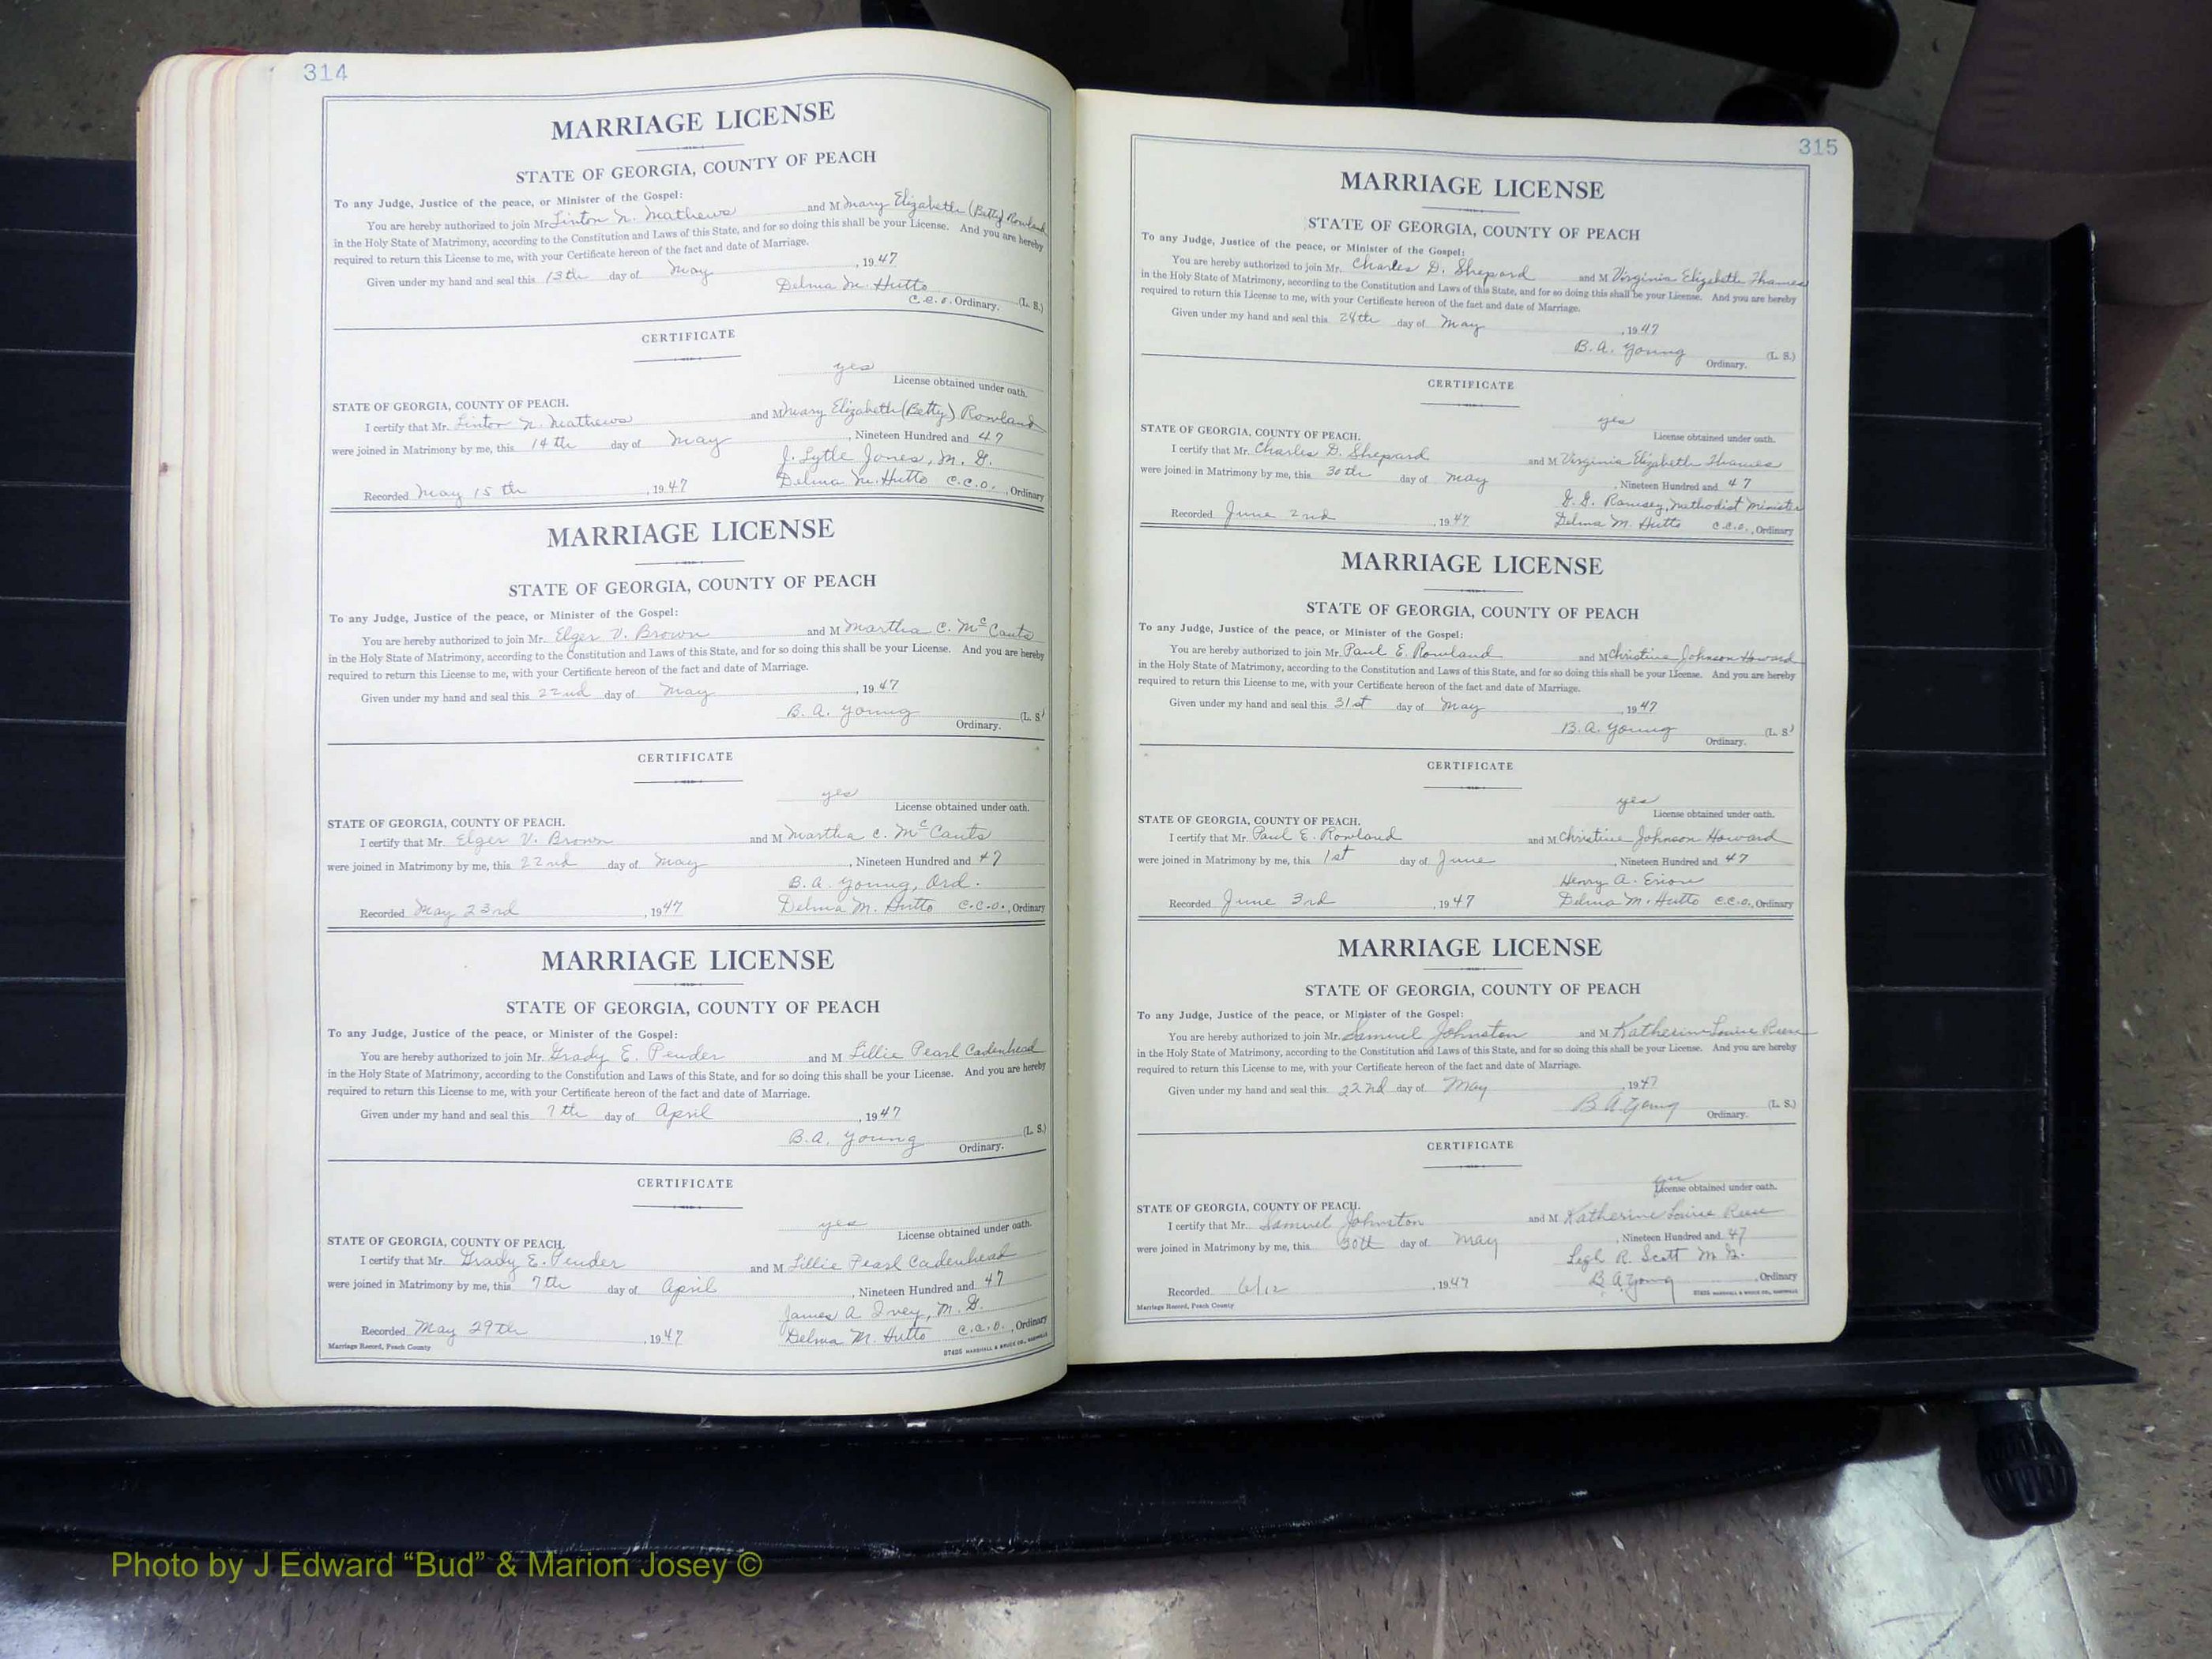 314
MARRIAGE LICENSE
STATE OF GEORGIA, COUNTY OF PEACH
To any Judge, Justice of the peace, or Minister of the Gospel:
You are hereby authorized to join Mr. Linton N. Mathews and M Mary Elizabeth (Betty) Rowland
in the Holy State of Matrimony, according to the Constitution and Laws of this State, and for so doing this shall be your License. And you are hereby
required to return this License to me, with your Certificate hereon of the fact and date of Marriage.
Given under my hand and seal this 13th day of May, 1947
Delma M. Hutto
C.C.O. Ordinary. (L. S.)
CERTIFICATE
yes
License obtained under oath.
STATE OF GEORGIA, COUNTY OF PEACH.
I certify that Mr. Linton N. Mathews and M Mary Elizabeth (Betty) Rowland
were joined in Matrimony by me, this 14th day of May, Nineteen Hundred and 47
J. Lytle Jones, M. G.
Recorded May 15th, 1947 Delma M. Hutto C.C.O., Ordinary
MARRIAGE LICENSE
STATE OF GEORGIA, COUNTY OF PEACH
To any Judge, Justice of the peace, or Minister of the Gospel:
You are hereby authorized to join Mr. Elger V. Brown and M Martha C. McCants
in the Holy State of Matrimony, according to the Constitution and Laws of this State, and for so doing this shall be your License. And you are hereby
required to return this License to me, with your Certificate hereon of the fact and date of Marriage.
Given under my hand and seal this 22nd day of May, 1947
B. A. Young (L. S.)
Ordinary.
CERTIFICATE
yes
License obtained under oath.
STATE OF GEORGIA, COUNTY OF PEACH.
I certify that Mr. Elger V. Brown and M Martha C. McCants
were joined in Matrimony by me, this 22nd day of May, Nineteen Hundred and 47
B. A. Young, Ord.
Recorded May 23rd, 1947 Delma M. Hutto C.C.O., Ordinary
MARRIAGE LICENSE
STATE OF GEORGIA, COUNTY OF PEACH
To any Judge, Justice of the peace, or Minister of the Gospel:
You are hereby authorized to join Mr. Grady E. Pender and M Lillie Pearl Cadenhead
in the Holy State of Matrimony, according to the Constitution and Laws of this State, and for so doing this shall be your License. And you are hereby
required to return this License to me, with your Certificate hereon of the fact and date of Marriage.
Given under my hand and seal this 7th day of April, 1947
B. A. Young (L. S.)
Ordinary.
CERTIFICATE
yes
License obtained under oath.
STATE OF GEORGIA, COUNTY OF PEACH.
I certify that Mr. Grady E. Pender and M Lillie Pearl Cadenhead
were joined in Matrimony by me, this 7th day of April, Nineteen Hundred and 47
James A Ivey, M. G.
Recorded May 29th, 1947 Delma M. Hutto C.C.O., Ordinary
Marriage Record, Peach County
37435 MARSHALL & BRUCE CO., NASHVILLE
315
MARRIAGE LICENSE
STATE OF GEORGIA, COUNTY OF PEACH
To any Judge, Justice of the peace, or Minister of the Gospel:
You are hereby authorized to join Mr. Charles D. Shepard and M Virginia Elizabeth Thames
in the Holy State of Matrimony, according to the Constitution and Laws of this State, and for so doing this shall be your License. And you are hereby
required to return this License to me, with your Certificate hereon of the fact and date of Marriage.
Given under my hand and seal this 24th day of May, 1947
B. A. Young (L. S.)
Ordinary.
CERTIFICATE
yes
License obtained under oath.
STATE OF GEORGIA, COUNTY OF PEACH.
I certify that Mr. Charles D. Shepard and M Virginia Elizabeth Thames
were joined in Matrimony by me, this 30th day of May, Nineteen Hundred and 47
Ramsey, Methodist Minister
Recorded June 2nd, 1947 Delma M. Hutto C.C.O., Ordinary
MARRIAGE LICENSE
STATE OF GEORGIA, COUNTY OF PEACH
To any Judge, Justice of the peace, or Minister of the Gospel:
You are hereby authorized to join Mr. Paul E. Rowland and M Christine Johnson Howard
in the Holy State of Matrimony, according to the Constitution and Laws of this State, and for so doing this shall be your License. And you are hereby
required to return this License to me, with your Certificate hereon of the fact and date of Marriage.
Given under my hand and seal this 31st day of May, 1947
B. A. Young (L. S.)
Ordinary.
CERTIFICATE
yes
License obtained under oath.
STATE OF GEORGIA, COUNTY OF PEACH.
I certify that Mr. Paul E. Rowland and M Christine Johnson Howard
were joined in Matrimony by me, this 1st day of June, Nineteen Hundred and 47
Henry A.
Recorded June 3rd, 1947 Delma M. Hutto C.C.O., Ordinary
MARRIAGE LICENSE
STATE OF GEORGIA, COUNTY OF PEACH
To any Judge, Justice of the peace, or Minister of the Gospel:
You are hereby authorized to join Mr. Samuel Johnston and M Katherine Louise Reese
in the Holy State of Matrimony, according to the Constitution and Laws of this State, and for so doing this shall be your License. And you are hereby
required to return this License to me, with your Certificate hereon of the fact and date of Marriage.
Given under my hand and seal this 22nd day of May, 1947
B A Young (L. S.)
Ordinary.
CERTIFICATE
yes
License obtained under oath.
STATE OF GEORGIA, COUNTY OF PEACH.
I certify that Mr. Samuel Johnston and M Katherine Louise Reese
were joined in Matrimony by me, this 30th day of May, Nineteen Hundred and 47
R. Scott M. G.
Recorded 6/12, 1947 B A Young, Ordinary
Marriage Record, Peach County
37435 MARSHALL & BRUCE CO., NASHVILLE
Photo by J Edward “Bud” & Marion Josey ©